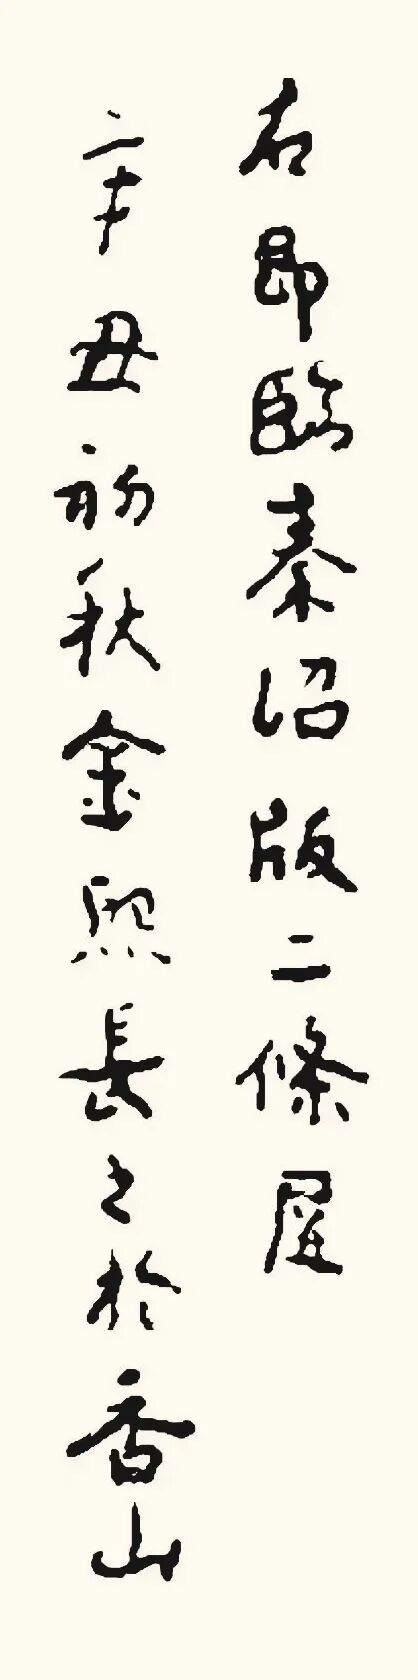 右即臨秦詔版二條屏
辛丑初秋金熙長之於香山